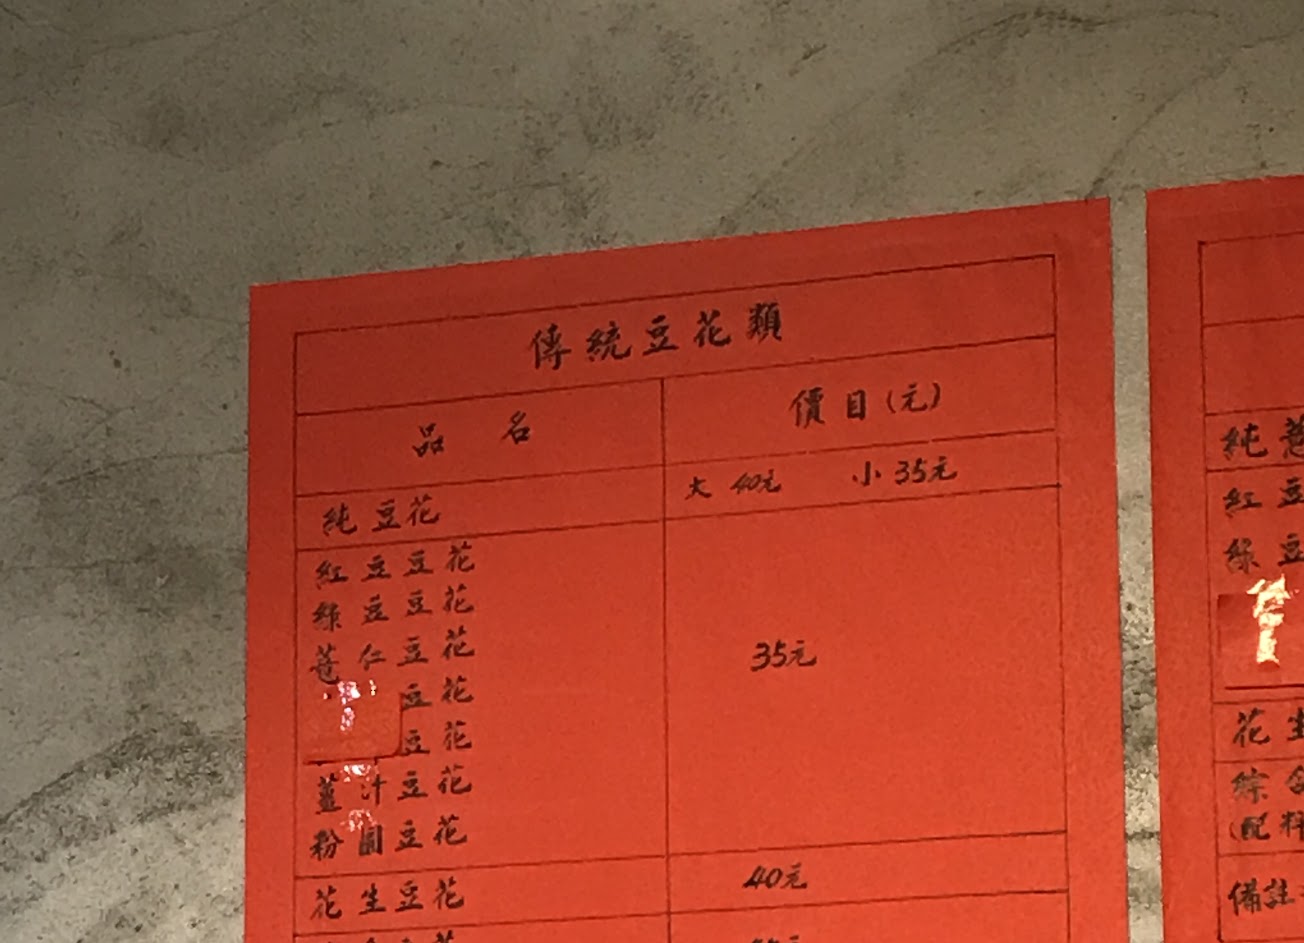 傳統豆花類
品名
價目(元)
純豆花
大 40元 小 35元
紅豆豆花
綠豆豆花
薏仁豆花
豆花
豆花
薑汁豆花
粉圓豆花
35元
花生豆花
40元
純薏
紅豆
綠豆
花生
綜合
(配料
備註: